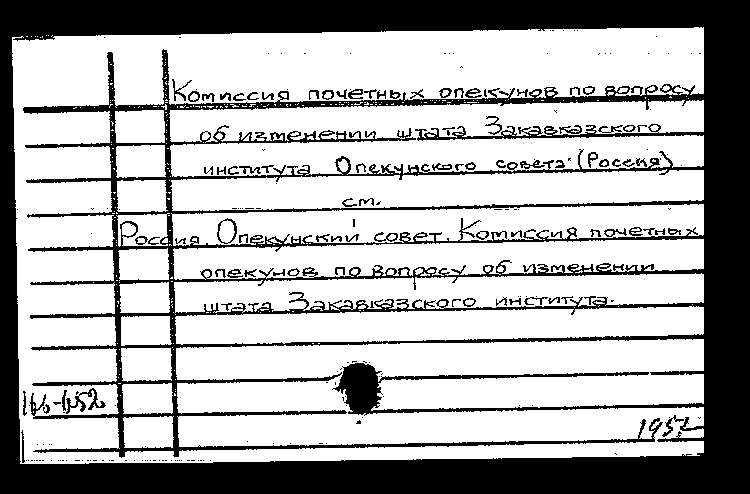 Комиссия почетных опекунов по вопросу
об изменении штата Закавказского
института Опекунского совета (Россия)
см.
Россия. Опекунский совет. Комиссия почетных
опекунов по вопросу об изменении
штата Закавказского института.